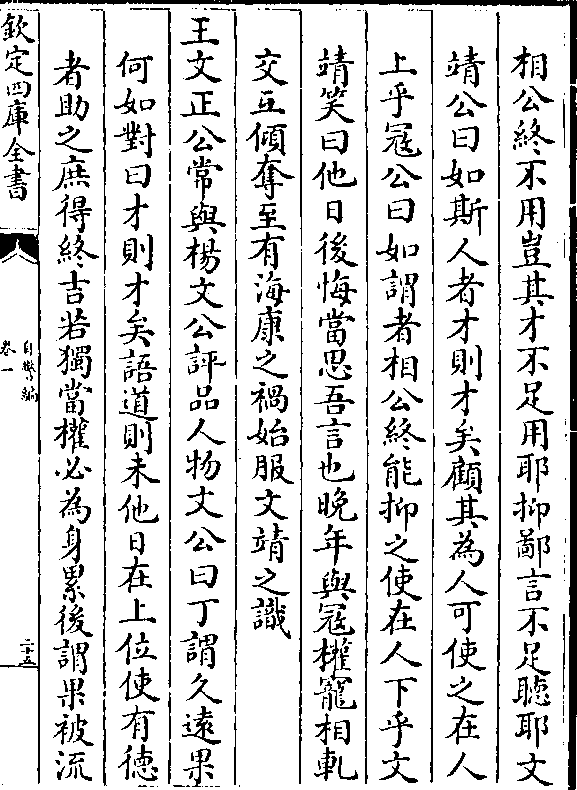 相公終不用豈其才不足用耶抑鄙言不足聽耶文
靖公曰如斯人者才則才矣顧其為人可使之在人
上乎冦公曰如謂者相公終能抑之使在人下乎文
靖笑曰他日後悔當思吾言也晚年與冦權寵相軋
交互傾奪至有海康之禍始服文靖之識
王文正公常與楊文公評品人物文公曰丁謂久逺果
何如對曰才則才矣語道則未他日在上位使有徳
者助之庶得終吉若獨當權必為身累後謂果被流
欽定四庫全書
自警編
卷一
二十五